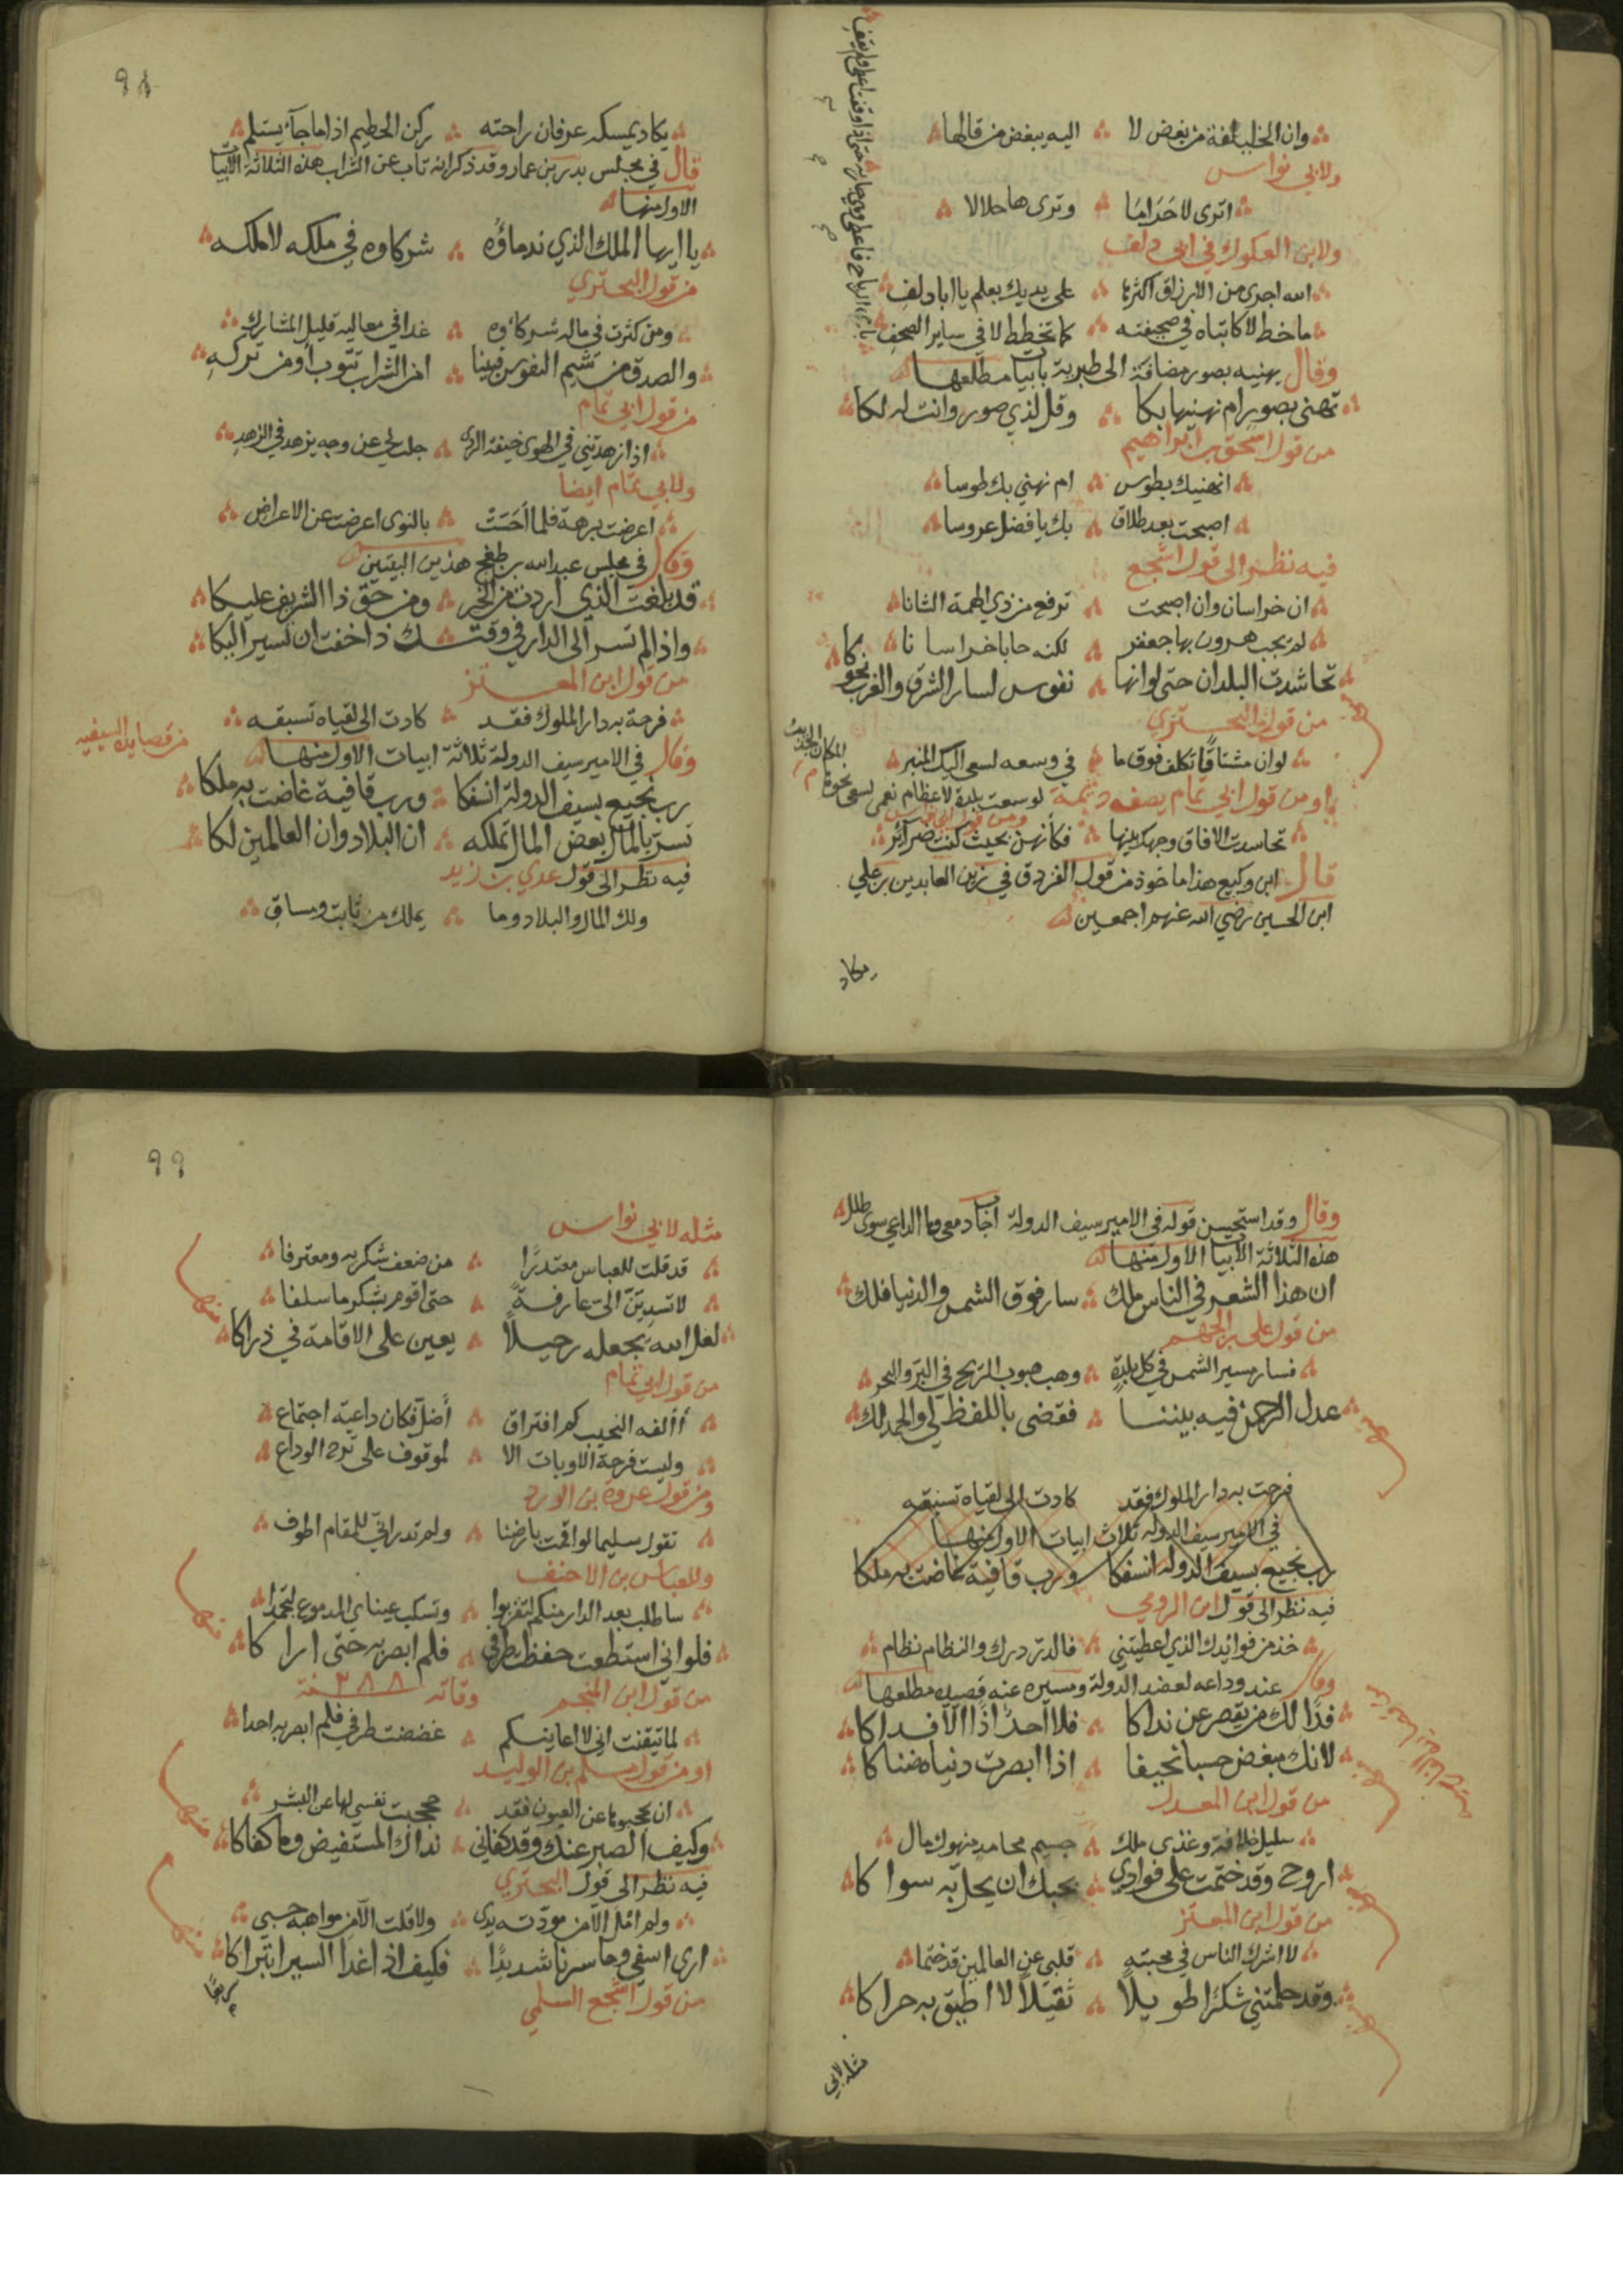 وان الخليفة من بغض لا ∴ اليه يبغض من قالها
ولابي نواس
اترى لاحراما ∴ وترى هاحلالا
ولابن العكوك في ابي دلف
الله اجرى من الارزاق اكثرها ∴ على يديك بعلم يا ابا دلف
ماخط لا كاتباه في صحيفته ∴ كما تخطط لا في ساير الصحف
بارى الرياح فاعطى وهي جارية حتى اذا وقفت اعطى ولم يقف
وقال يهنيه بصور مضافة الى طبرية بابيات مطلعها
تهنى بصور ام نهنيها بكا ∴ وقل لذي صور وانت له لكا
من قول اسحق بن ابراهيم
انهنيك بطوس ∴ ام نهني بك طوسا
اصبحت بعد طلاق ∴ بك يا فضل عروسا
فيه نظر الى قول اشجع
ان خراسان وان اصبحت ∴ ترفع من ذي الهمة الشانا
لم يحب هرون بها جعفر ∴ لكنه حابا خراسانا
تحاسدت البلدان حتى لوانها ∴ نفوس لسار الشرق والغرب نحوكا
من قول البحتري
لوان مشتاقا تكلف فوق ما ∴ في وسعه لسعى اليك المنبر
او من قول ابي تمام يصف ديمة لوسعت بلدة لاعظام نعمى لسعى نحوها المكان الجديب
ومن قول ابي نواس
تحاسدت الافاق وجهك بينها ∴ فكأنهن بحيث كنت ضرآئر
قال ابن وكيع هذا ماخوذ من قول الفرزدق في زين العابدين بن علي
ابن الحسين رضي الله عنهم اجمعين
يكاد
٩٨
يكاد يمسكه عرفان راحته ∴ ركن الحطيم اذا ما جآء يستلم
قال في مجلس بدر بن عمار وقد ذكر انه تاب عن الشراب هذه الثلاثة الابيات
الاول منها
يا ايها الملك الذي ندماؤه ∴ شركاوه في ملكه لا ملكه
من قول البحتري
ومن كثرت في ماله شركاؤه ∴ غدا في معاليه قليل المشارك
والصدق من شيم النفوس فنبنا ∴ امن الشراب تتوب أو من تركه
من قول ابي تمام
اذا زهدتني في الهوى خيفة الردى ∴ جلت لي عن وجه يزهد في الزهد
ولابي تمام ايضا
اعرضت برهة فلما أحست ∴ بالنوى اعرضت عن الاعراض
وقال في مجلس عبد الله بن طغج هذين البيتين
قد بلغت الذي اردت من البر ∴ ومن حق ذا الشريف عليكا
واذا لم تسر الى الدار في وقت ∴ ك ذا خفت ان تسير اليكا
من قول ابن المعتز
فرحة به دار الملوك فقد ∴ كادت الى لقياه تسبقه
من قصايده السيفيه
وقال في الامير سيف الدولة ثلاثة ابيات الاول منها
رب نجيع بسيف الدولة انسفكا ∴ ورب قافية غاضت به ملكا
تسر بالمال بعض المال تملكه ∴ ان البلاد وان العالمين لكا
فيه نظر الى قول عدي بن زيد
ولك المال والبلاد وما ∴ يملك من ثابت وساق
وقال وقد استحسن قوله في الامير سيف الدولة اجاب دمعي وما الداعي سوى طلل
هذه الثلاثة الابيات الاول منها
ان هذا الشعر في الناس ملك ∴ سار فوق الشمس والدنيا فلك
من قول علي بن الجهم
فسار مسير الشمس في كل بلدة ∴ وهب هبوب الريح في البر والبحر
عدل الرحمن فيه بيننا ∴ فقضى باللفظ لي والحمد لك
فرحت به دار الملوك فقد كادت الى لقياه تسبقه
في الامير سيف الدوله ثلاث ابيات الاول منها
رب نجيع بسيف الدوله انسفكا ورب قافية غاضت به ملكا
فيه نظر الى قول ابن الرومي
خذ من فوائدك الذي اعطيتني ∴ فالدر درك والنظام نظام
وقال عند وداعه لعضد الدولة ومسيره عنه قصيده مطلعها
فذا لك من يقصر عن نداكا ∴ فلا احد اذا الا فداكا
لانك مبغض حسبا نحيفا ∴ اذا ابصرت دنياه ضناكا
من قول ابن المعدل
سليل خلافة وغذي ملك ∴ جسيم محامد منهوك مال
اروح وقد ختمت على فوادي ∴ بحبك ان يحل به سواكا
من قول ابن المعتز
لا اشرك الناس في محبته ∴ قلبي عن العالمين قد ختما
وقد حملتني شكرا طويلا ∴ ثقيلا لا اطيق به حراكا
مثله لابي
٩٩
مثله لابي نواس
قد قلت للعباس معتذرا ∴ من ضعف شكريه ومعترفا
لا تسدين الي عارفة ∴ حتى اقوم بشكر ما سلفا
لعل الله يجعله رحيلا ∴ يعين على الاقامة في ذراكا
من قول ابي تمام
أألفه النحيب كم افتراق ∴ أضل فكان داعية اجتماع
وليست فرحة الاوبات الا ∴ لموقوف على ترح الوداع
ومن قول عروة بن الورد
تقول سليما لو اقمت بارضنا ∴ ولم تدر اني للمقام اطوف
وللعباس بن الاحنف
ساطلب بعد الدار منكم لتقربوا ∴ وتسكب عيناي الدموع لتجمدا
فلو اني استطعت حفظت طرفي ∴ فلم ابصر به حتى اراكا
من قول ابن المنجم وفاته ٢٨٨ سنة
لما تيقنت اني لا اعاينكم ∴ غضضت طرفي فلم ابصر به احدا
او من قول مسلم بن الوليد
ان يحجبوها عن العيون فقد ∴ حججبت نفسي لها عن البشر
وكيف الصبر عنك وقد كفاني ∴ نداك المستفيض وما كفاكا
فيه نظر الى قول البحتري
ولم امل الا من مودته يدي ∴ ولا قلت الا من مواهبه حسبي
ارى اسفي وما سرنا شديدا ∴ فكيف اذا غدا السير ابتراكا
من قول اشجع السلمي